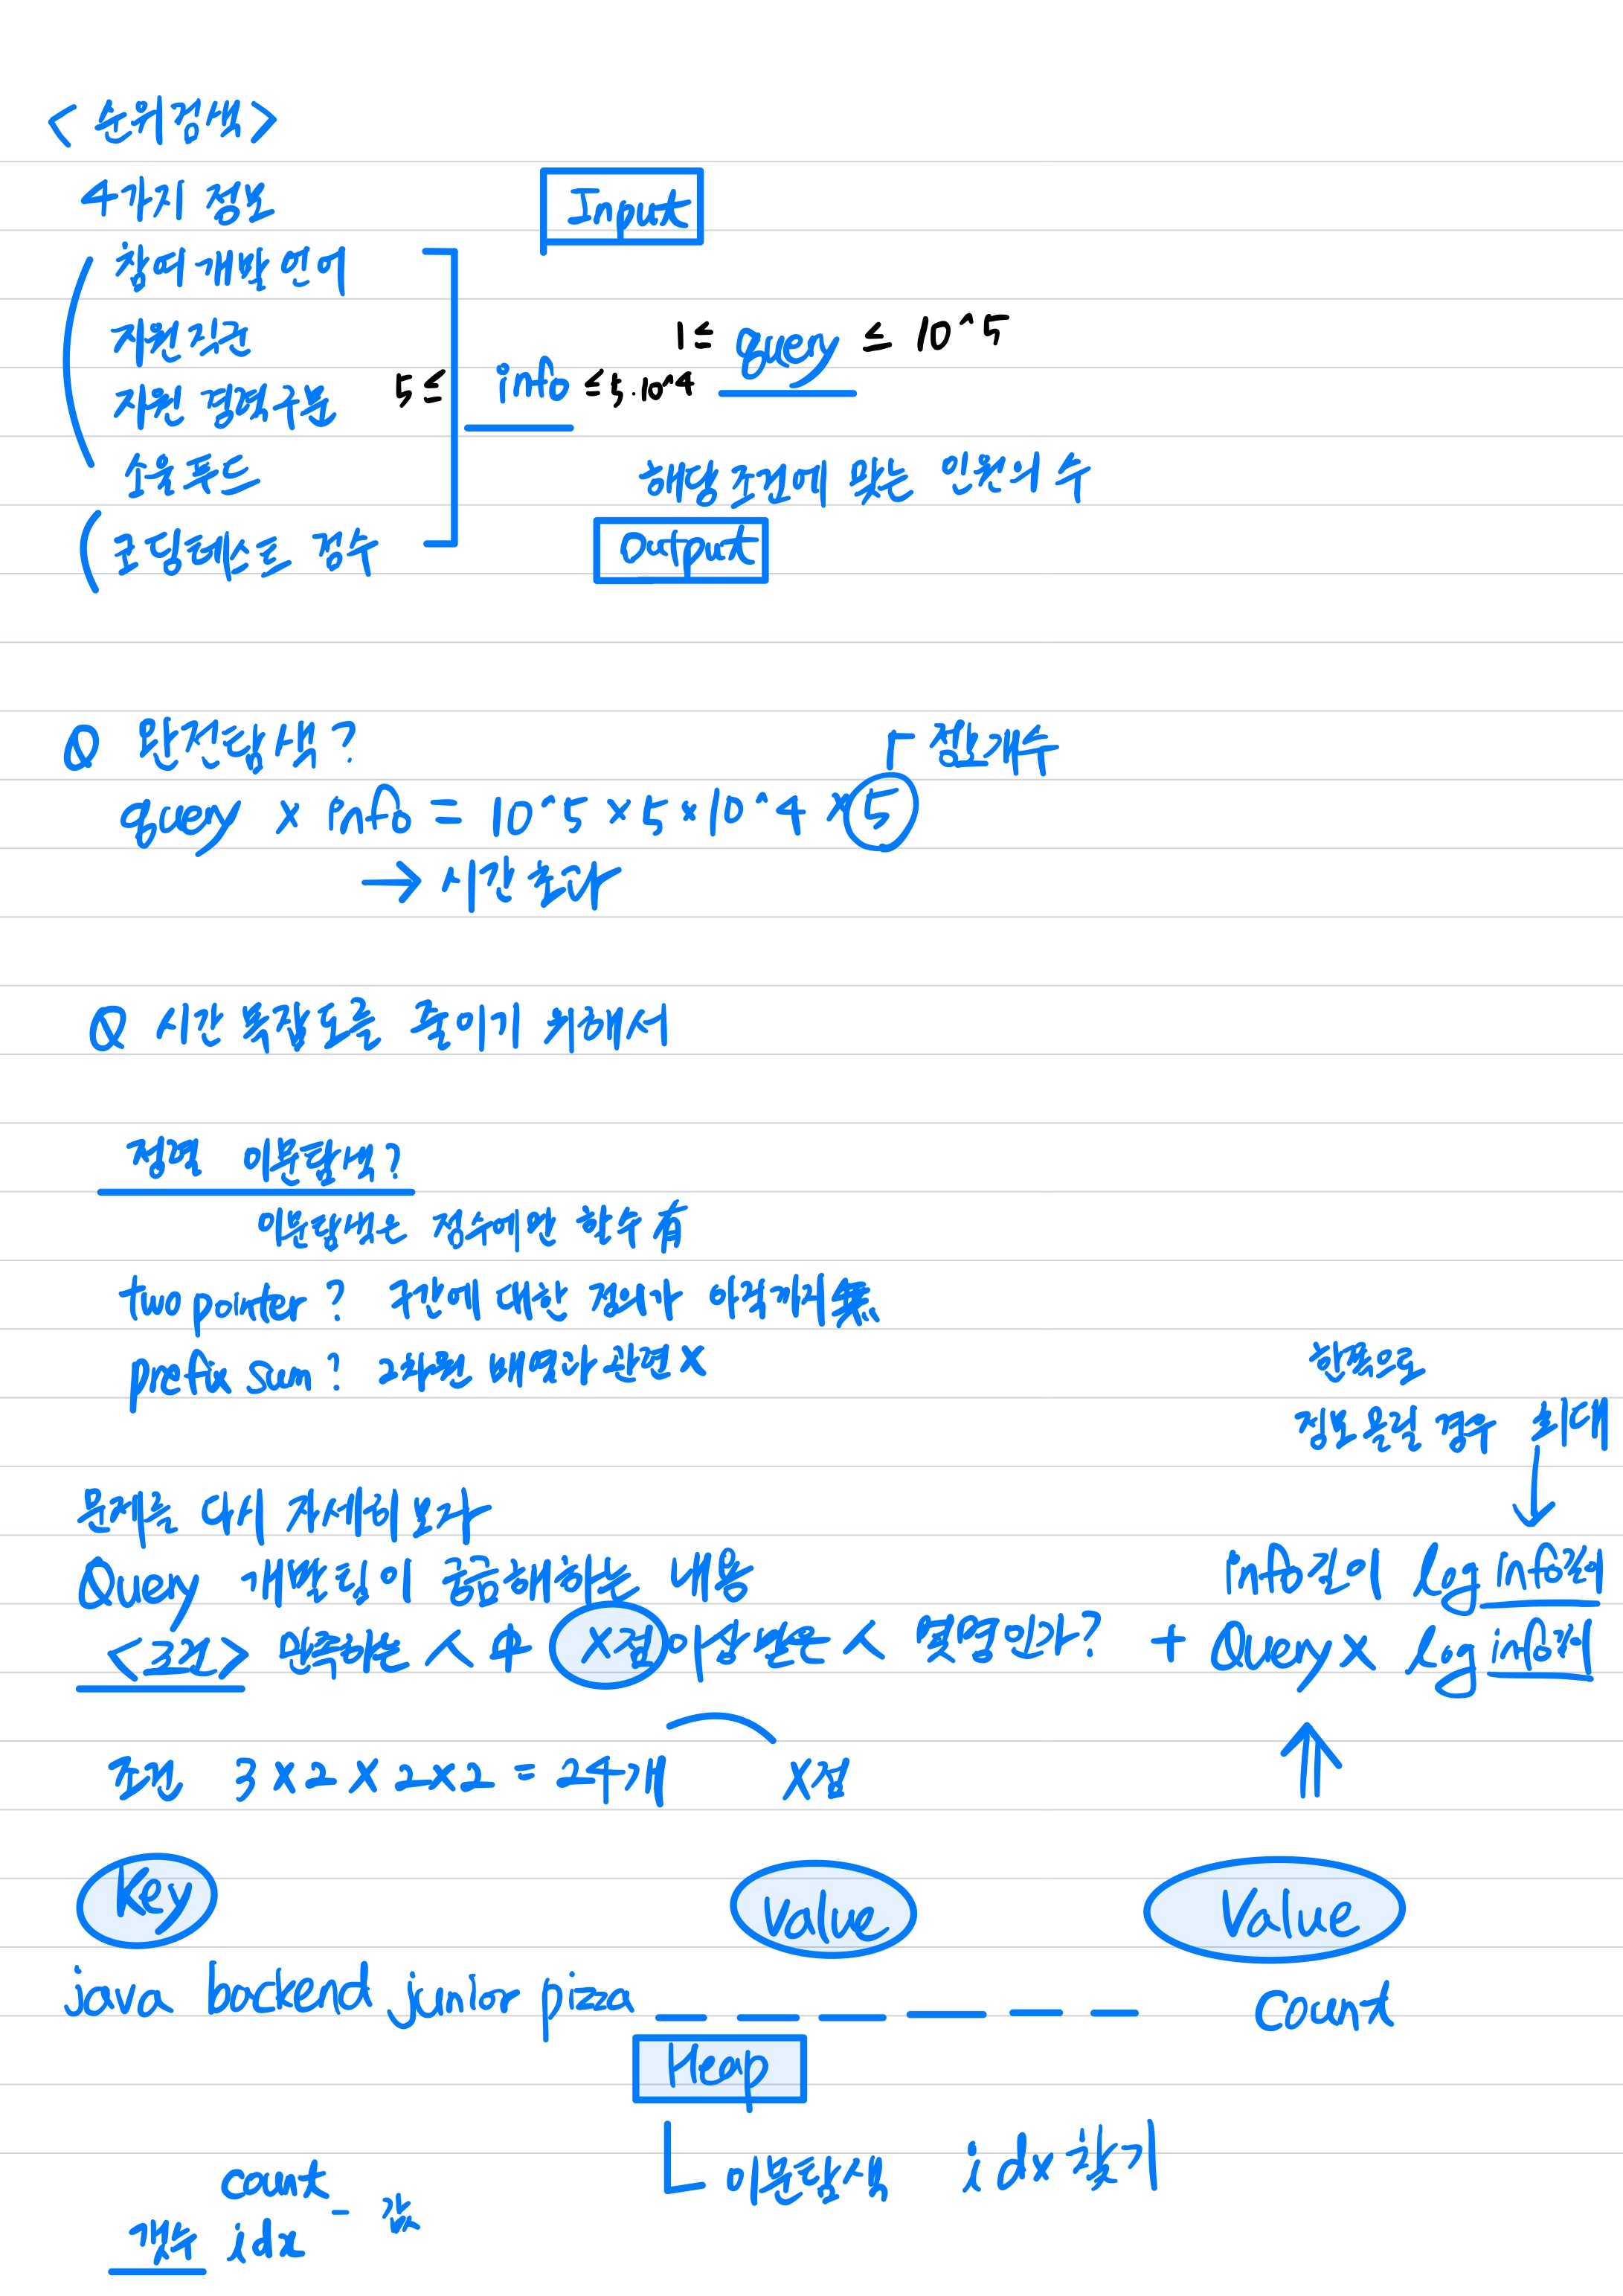 < 순위검색 >
4가지 정보
Input
참여 개발 언어
지원 직군
1 ≤ query ≤ 10^5
지원 경력구분
5 ≤ info ≤ 5.10^4
소울푸드
해당 조건에 맞는 인원의 수
코딩테스트 점수
Output
Q 완전탐색?
정보개수
query x info = 10^5 x 5 x 10^4 x 5
→ 시간초과
Q 시간 복잡도를 줄이기 위해서
정렬 이분탐색?
이분탐색은 점수에만 할수 有
two pointer ? 구간에 대한 정의가 아직까지 無
prefix sum ? 2차원 배열과 관련 X
한쪽으로
정보 몰릴 경우 최대
문제를 다시 자세히보자
Query 개발팀이 궁금해하는 내용
info길이 log info길이
<조건> 만족하는 人 中 X점 이상 받은 人 몇명인가?
+ Query x log info길이
조건 3 x 2 x 2 x 2 = 24개 X점
Key Value Value
java backend junior pizza count
Heap
이분탐색 idx 찾기
count
갯수 idx - 값